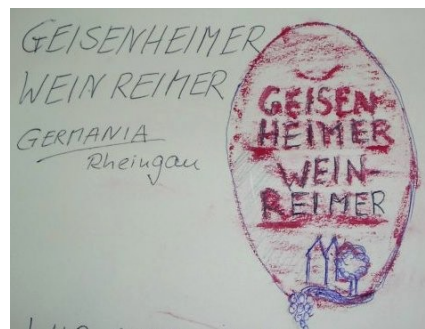 GEISENHEIMER
WEIN REIMER
GERMANIA
Rheingau
GEISEN-
HEIMER
WEIN-
REIMER